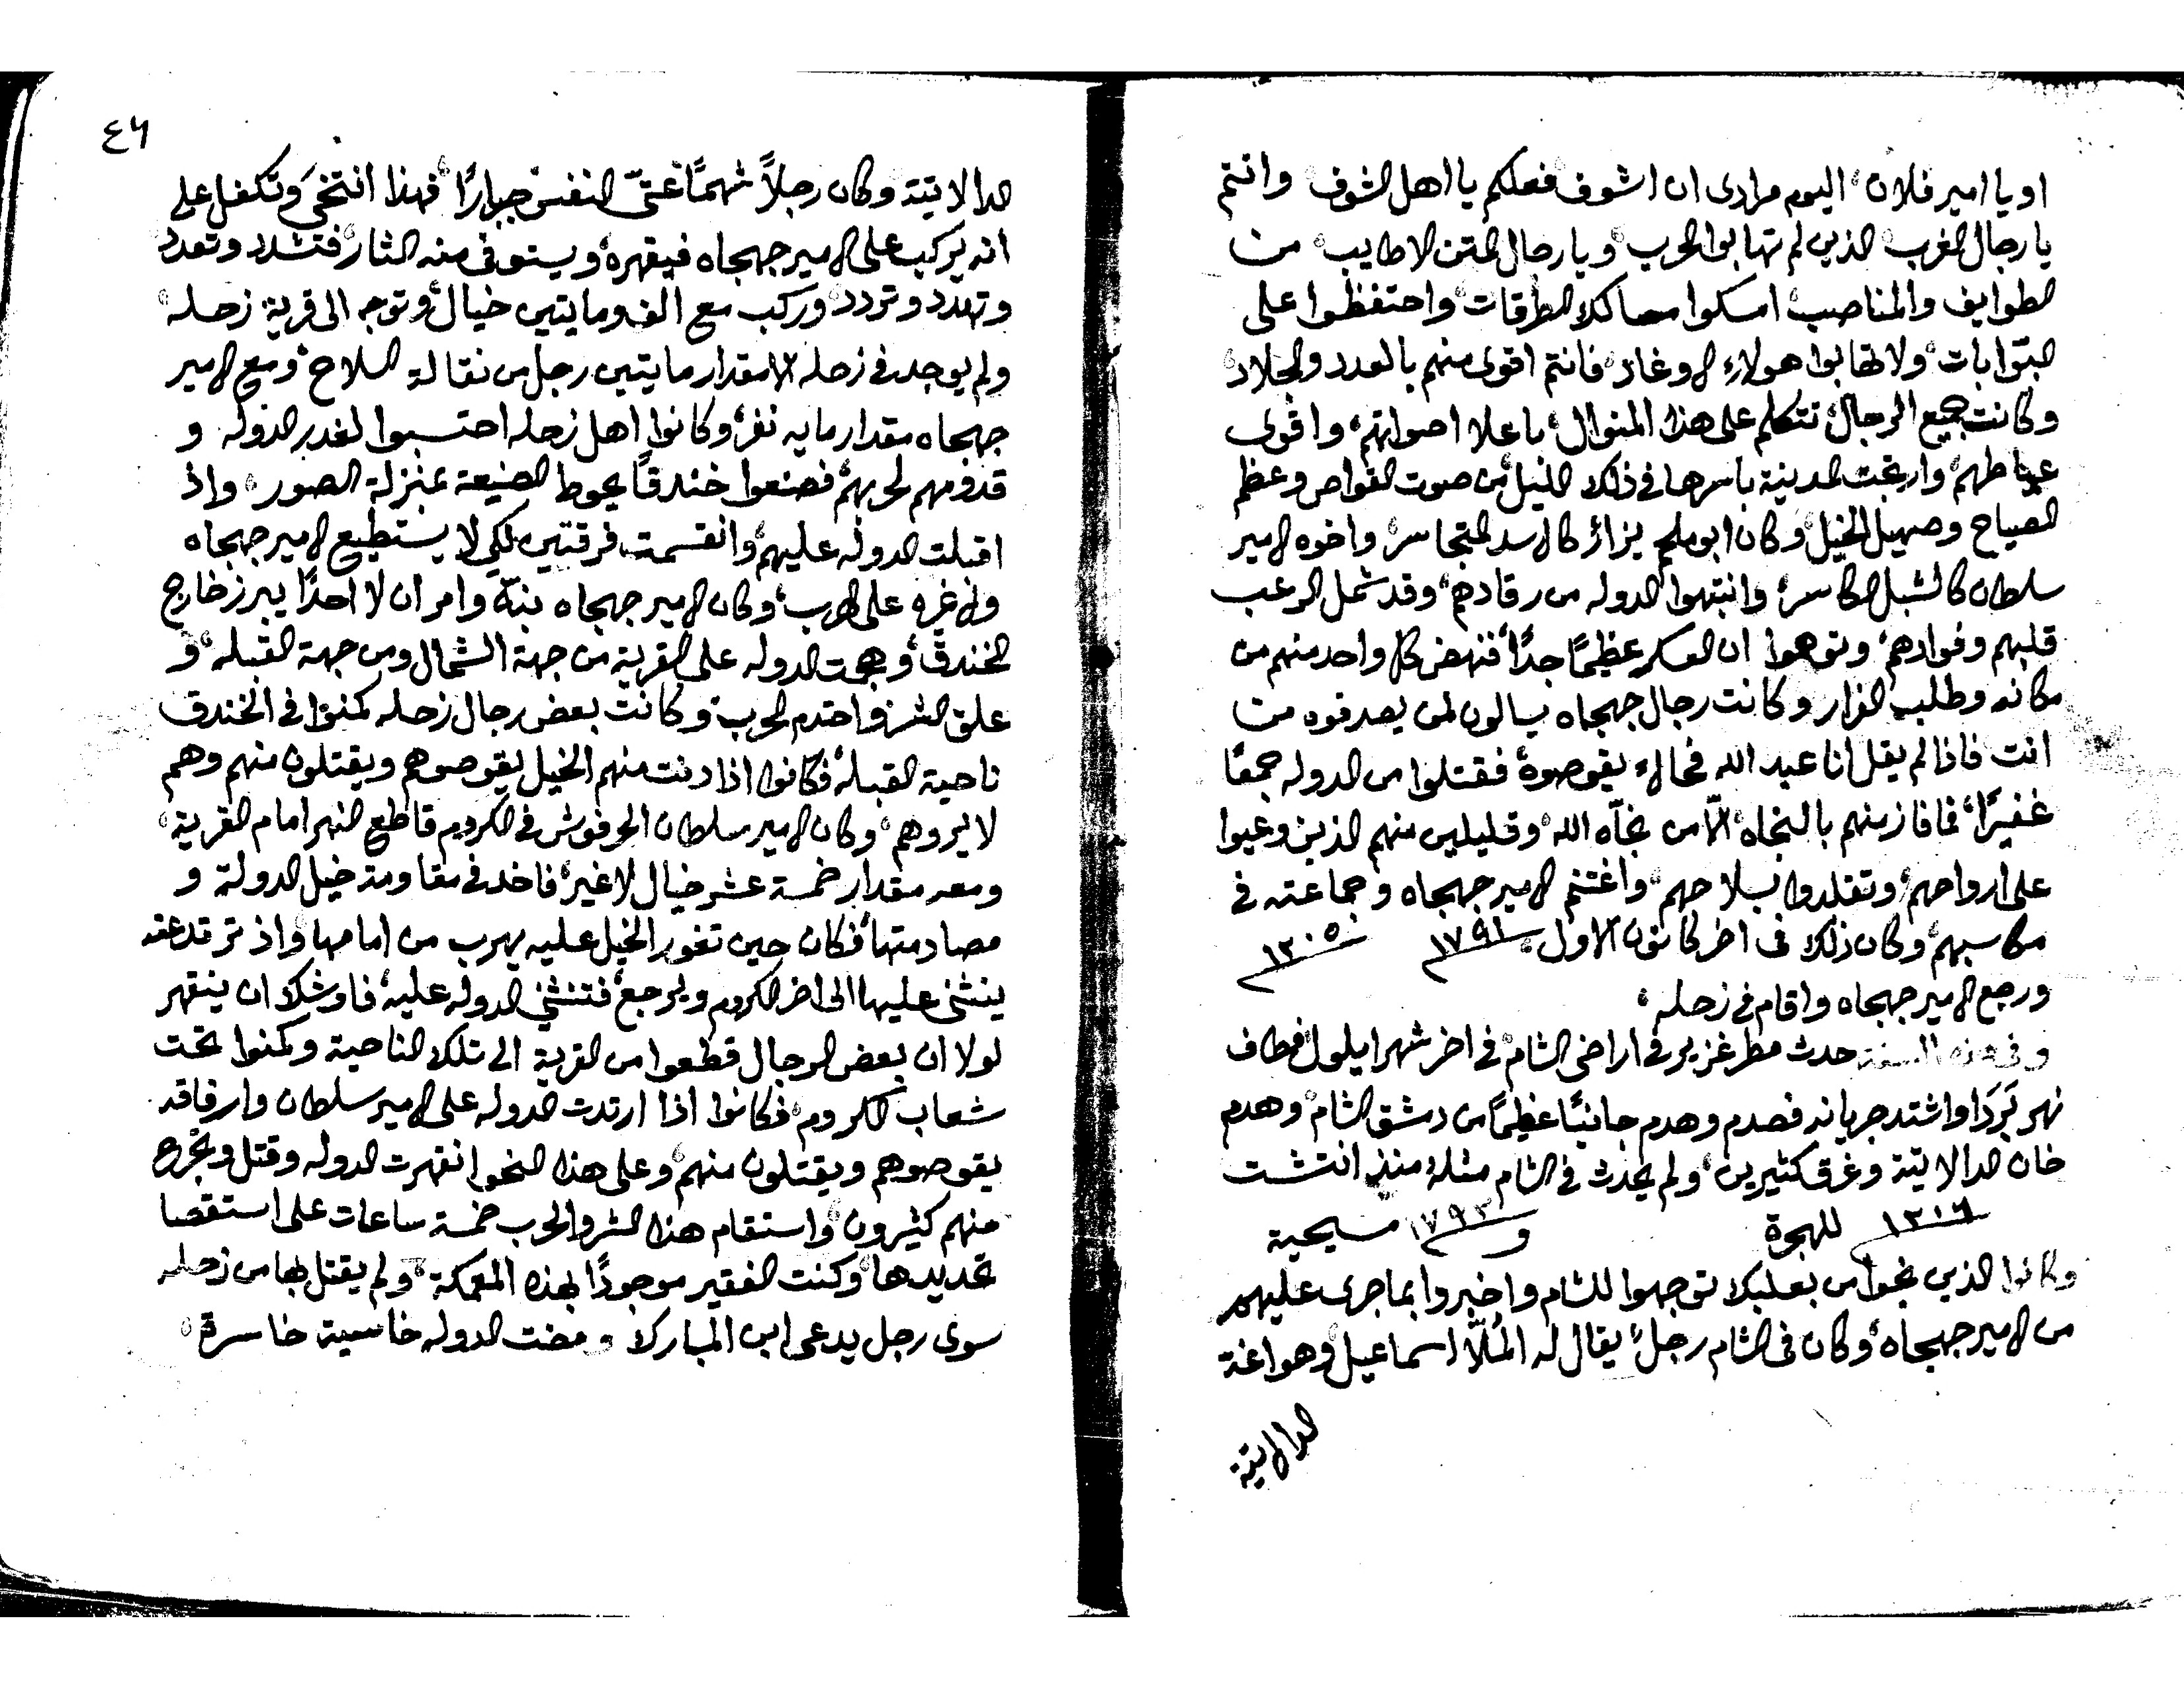 او يا امير فلان اليوم مرادى ان اشوف فعلكم يا اهل الشوف وانتم
يا رجال الغرب الذين لم تهابوا الحرب ويا رجال المتن الاطايب من
الطوايف والمناصب امسكوا مساكك الطرقات واحتفظوا على
البوّابات ولا تهابوا هولاء الاوغاد فانتم اقوى منهم بالعدد والجلاد
وكانت جميع الرجال تتكلم على هذا المنوال باعلا اصواتهم واقوى
عياطهم وارتجت المدينة باسرها فى ذلك الليل من صوت القواص وعظم
الصياح وصهيل الخيل وكان ابو ملحم يزائر كالاسد المتجاسر واخوه الامير
سلطان كالشبل الكاسر وانتبهوا الدوله من رقادهم وقد شمل الرعب
قلبهم وفوادهم وتوهموا ان العسكر عظيمًا جدًا فنهض كل واحد منهم من
مكانه وطلب الفرار وكانت رجال جهجاه يسالون لمن يصدفوه من
انت فاذا لم يقل انا عبد الله فحالاً يقوصوه فقتلوا من الدوله جمعًا
غفيرًا فما فاز منهم بالنجاه الّا من نجّاه الله وقليلين منهم الذين وعيوا
على ارواحهم وتقلدوا بسلاحهم واغتنم الامير جهجاه وجماعته فى
مكاسبهم وكان ذلك فى اخر كانون الاول ١٧٩١ ١٢٠٥
ورجع الامير جهجاه واقام فى زحله
وفى هذه السنة حدث مطر غزير فى اراضى الشام فى اخر شهر ايلول فطاف
نهر بَرَدَا واشتد جريانه فصدم وهدم جانبًا عظيمًا من دمشق الشام وهدم
خان الدالاتية وغرق كثيرين ولم يحدث فى الشام مثله منذ انتشت
١٢٠٦ للهجرة و ١٧٩٢ مسيحية
وكانوا الذين نجوا من بعلبك توجهوا للشام واخبروا بما جرى عليهم
من الامير جهجاه وكان فى الشام رجل يقال له المُلّا اسماعيل وهو اغة
الدالاتية
٤٦
الدالاتية وكان رجلاً شهمًا غنىّ النفس جبارًا فهذا انتخىَ وتكفل على
انه يركب على الامير جهجاه فيقهره ويستوفى منه الثار فتشدد وتعدد
وتهدد وتردد وركب مع الف ومايتين خيال وتوجه الى قرية زحله
ولم يوجد فى زحله الا مقدار مايتين رجل من نقالة السلاح ومع الامير
جهجاه مقدار مايه نفر وكانوا اهل زحله احتسبوا لغدر الدوله و
قدومهم لحربهم فصنعوا خندقًا يحوط الضيعة بمنزلة الصور واذ
اقبلت الدوله عليهم وانقسمت فرقتين لكى لا يستطيع الامير جهجاه
ولا غيره على الهرب وكان الامير جهجاه نبّه وامر ان لا احدًا يبرز خارج
الخندق وهجمت الدوله على القرية من جهة الشمال ومن جهة القبله و
علق الشر واحتدم الحرب وكانت بعض رجال زحله كمنوا فى الخندق
ناحية القبله فكانوا اذا دنت منهم الخيل يقوصوهم ويقتلون منهم وهم
لا يروهم وكان الامير سلطان الحرفوش فى الكروم قاطع النهر امام القرية
ومعه مقدار خمسة عشر خيال لا غير فاخد فى مقاومة خيل الدولة و
مصادمتها فكان حين تغور الخيل عليه يهرب من امامها واذ ترتد عنه
ينثنى عليها الى اخر الكروم ويرجع فتنثنى الدوله عليه فاوشك ان ينقهر
لولا ان بعض الرجال قطعوا من القرية الى تلك الناحية وكمنوا تحت
شعاب الكروم فكانوا اذا ارتدت الدوله على الامير سلطان وارفاقه
يقوصوهم ويقتلون منهم وعلى هذا النحو انقهرت الدوله وقتل وتجرح
منهم كثيرون واستقام هذا الشر والحرب خمسة ساعات على استقصا
تحديدها وكنت الفقير موجودًا بهذه المعمكة ولم يقتل بها من زحله
سوى رجل يدعى ابن المبارك ومضت الدوله خاسية خاسرة